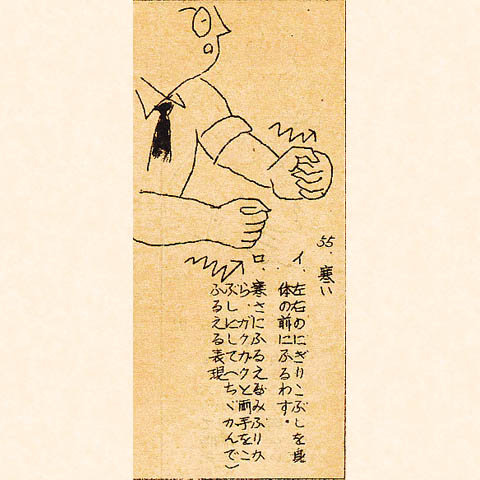 55. 寒い
イ、左右のにぎりこぶしを身
体の前にふるわす。
ロ、寒さにふるえるみぶりか
ら、ガクガクと両手をこ
ぶしにして(ちゞかんで)
ふるえる表現